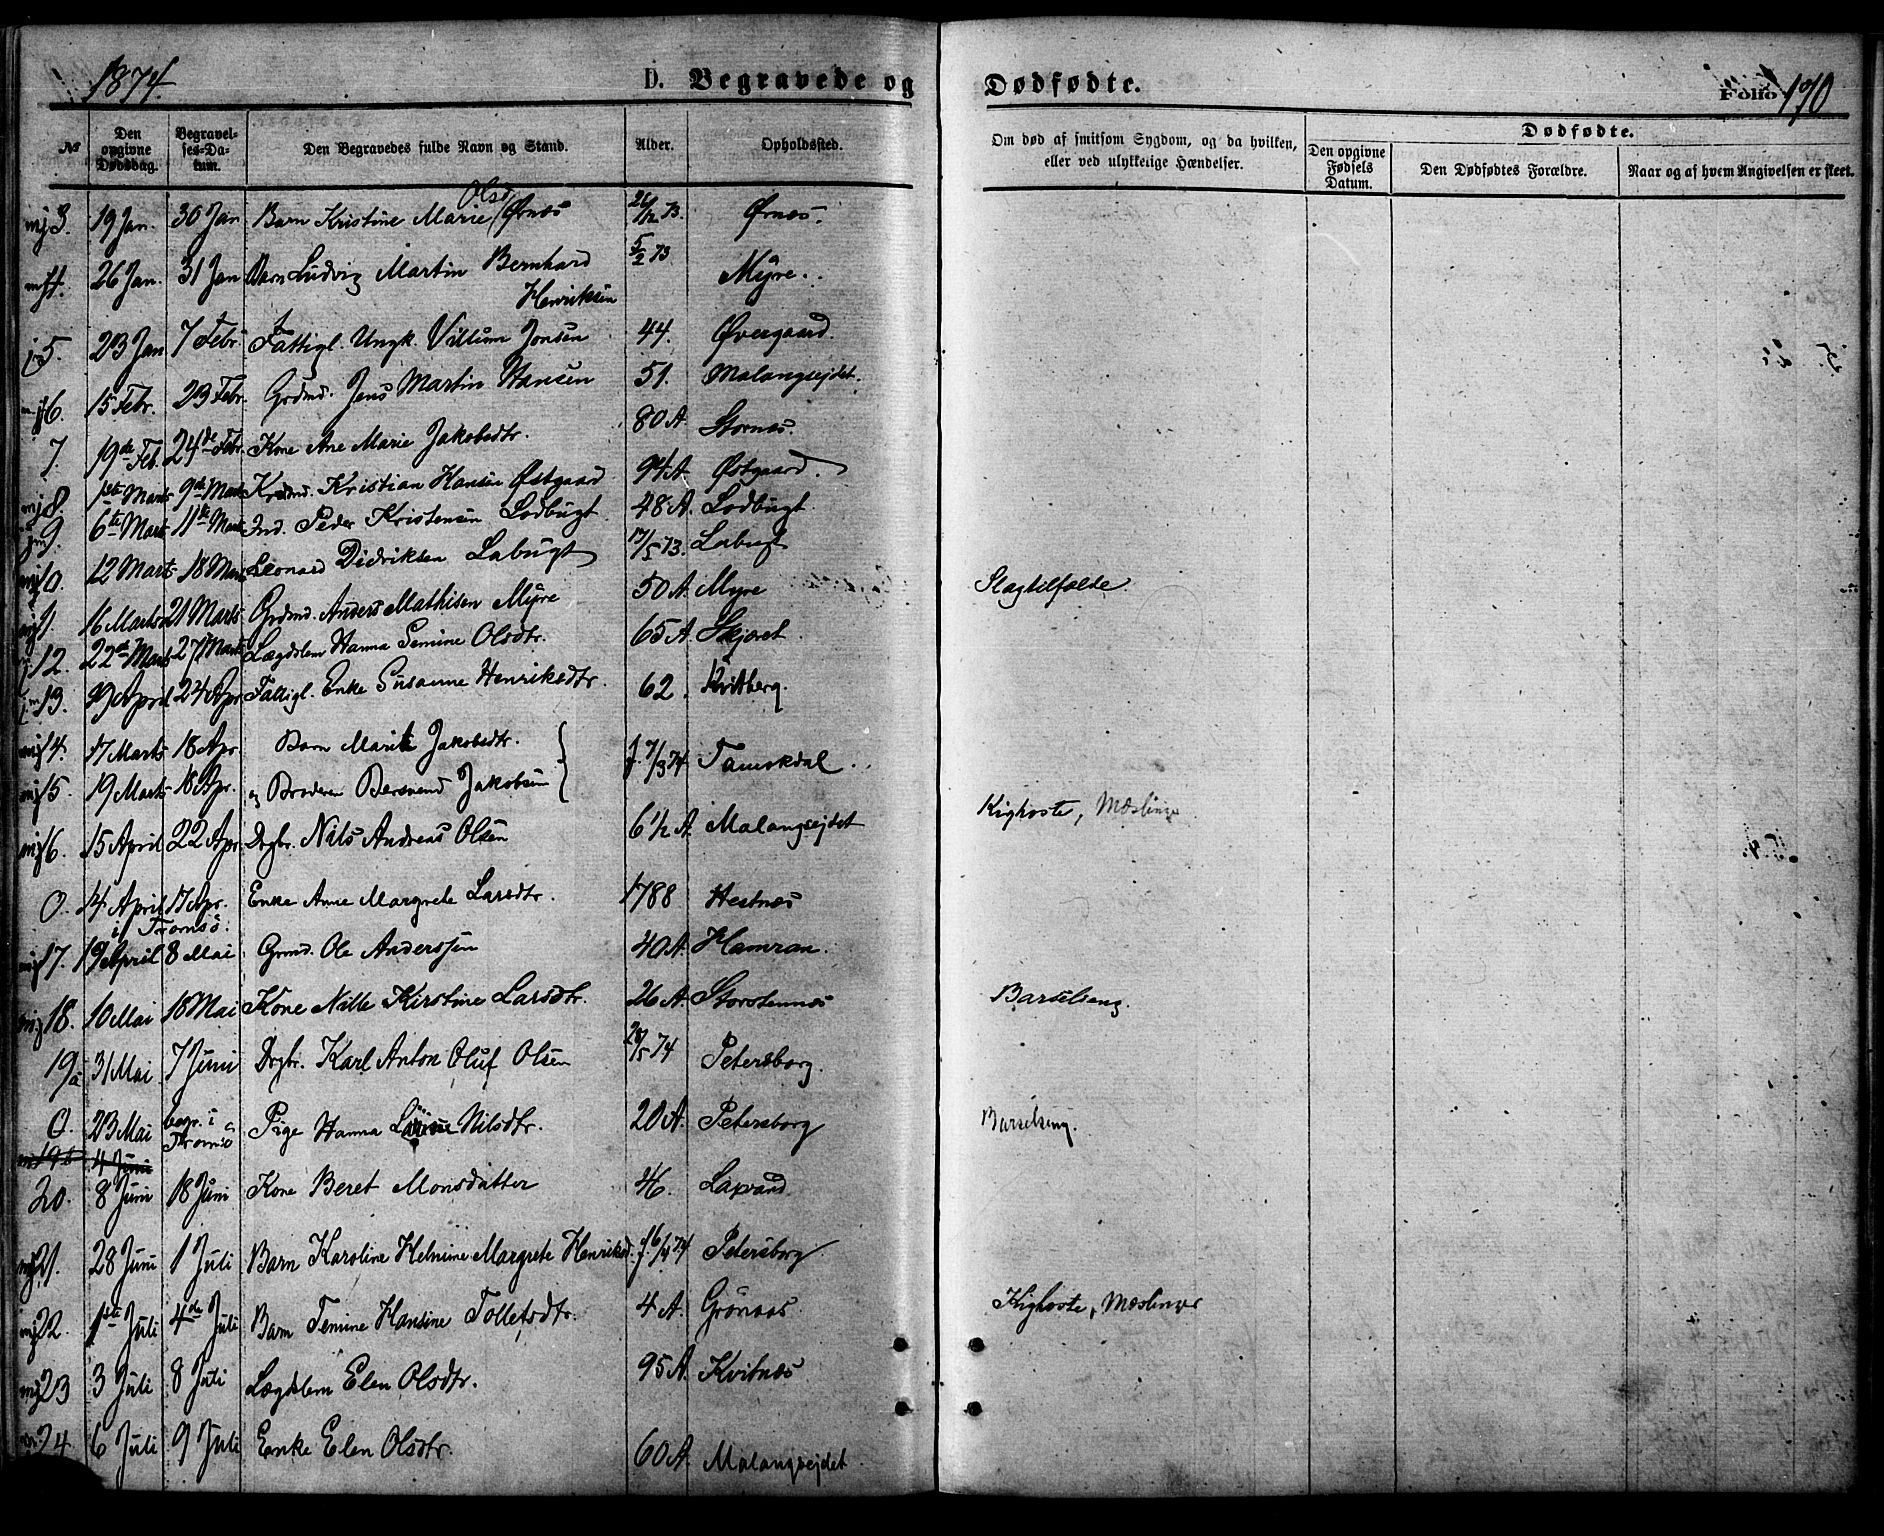 1874.
D. Begravede og Dødfødte.
Folio 170
№
Den opgivne Dødsdag.
Begravelses-Datum.
Den Begravedes fulde Navn og Stand.
Alder.
Opholdssted.
Om død af smitsom Sygdom, og da hvilken, eller ved ulykkelige Hændelser.
Dødfødte.
Den opgivne Fødsels Datum.
Den Dødfødtes Forældre.
Naar og af hvem Angivelsen er skeet.
Olsd
3. 19 Jan. 30 Jan Barn Kristine Marie Ørnæs 26/12 73 Ørnæs.
4. 26 Jan. 31 Jan Barn Ludvig Martin Bernhard 5/2 73 Myre.
Henriksen
5. 23 Jan 7 Febr. Fattigl. Ungk. Villum Jonsen 44. Øvergaard.
6. 15 Febr. 23 Febr. Grdmd. Jens Martin Hansen 51. Malangseidet.
7. 19de Feb. 24de Febr. Kone Ane Marie Jakobsdtr. 80 A. Stornæs.
8. 1ste Marts 9de Marts Kristian Hansen Østgaard 94 A. Østgaard.
9. 6te Marts 11te Marts Ind. Peder Kristensen Lodbugt 48 A. Lodbugt.
10. 12 Marts 18 Marts Leonard Didriksen Labugt 17/5 73. Labugt
11. 16 Marts 21 Marts Grdmd. Anders Mathisen Myre 50 A. Myre Slagtilfælde.
12. 22de Marts 27 Marts Lægdslem Hanna Semine Olsdtr. 65 A. Skjæret.
13. 19 April 24 Apr Fattigl. Enke Susanne Henriksdtr. 62. Kvitberg.
14. 17 Marts 18 Apr. Barn Marit Jakobsdtr. f. 7/3 74 Tamokdal.
15. 19 Marts 18 Apr. og Broderen Bersvend Jakobsen
16. 15 April 22 Apr. Drgbr. Nils Andreas Olsen 6 1/2 A. Malangseidet Kighoste, Mæslinger
0. 14 April 17 Apr. Enke Anne Margrete Larsdtr. 1788 Hestnæs
i Tromsö.
17. 19 April 8 Mai Grmd. Ole Anderssen 40 A. Hamran.
18. 10 Mai 18 Mai Kone Nille Kirstine Larsdtr. 26 A. Storstennæs Barselseng.
19a 31 Mai 7 Juni Drgbr. Karl Anton Oluf Olsen 28/5 74 Petersborg.
0. 23 Mai begr. i Tromsö Pige Hanna Nilsdtr. 20 A. Petersborg Barselseng.
4 Juni
20. 8 Juni 18 Juni Kone Beret Monsdatter 46. Laxvand.
21. 28 Juni 1 Juli Barn Karoline Helmine Margrete Henriksd. f. 16/4 74 Petersborg
22. 1ste Juli 4de Juli Barn Hansine Tollefsdtr. 4 A. Grönaas Kighoste, Mæslinger
23 3 Juli 8 Juli Lægdslem Elen Olsdtr. 95 A. Kvitnæs
24. 6 Juli 9 Juli Enke Elen Olsdtr. 60 A. Malangseidet